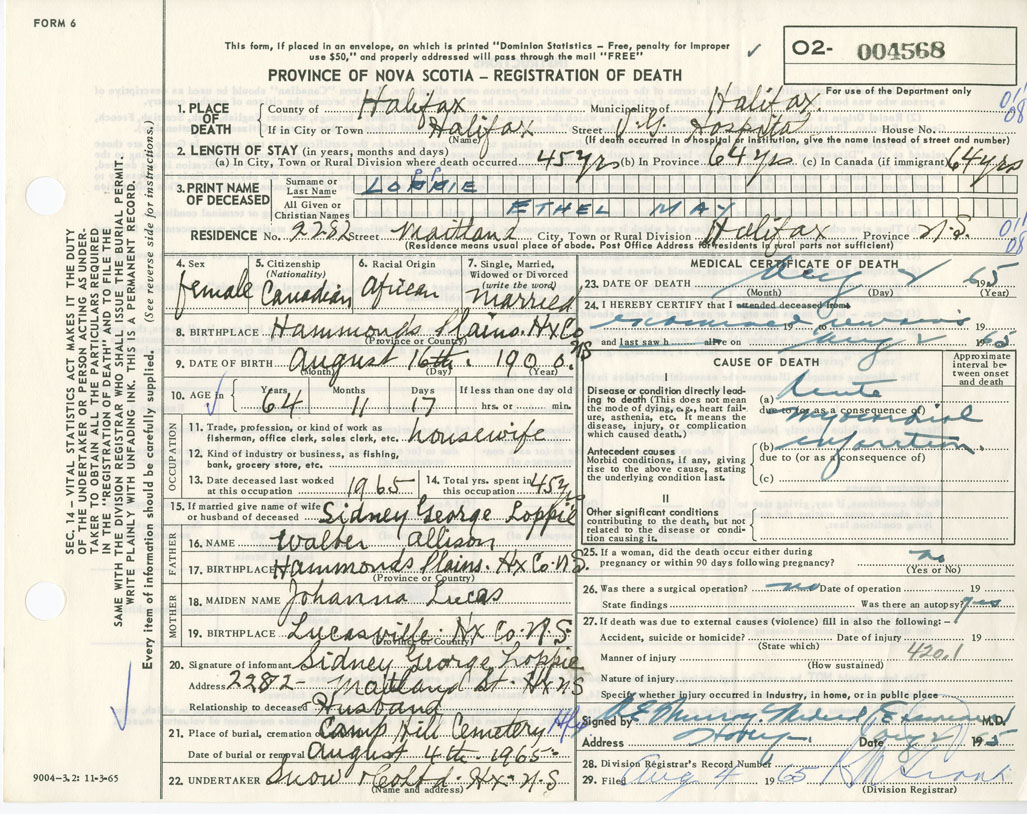 FORM 6
This form, if placed in an envelope, on which is printed "Dominion Statistics – Free, penalty for improper
use $50," and properly addressed will pass through the mail "FREE"
✓
O2- 004568
For use of the Department only
PROVINCE OF NOVA SCOTIA – REGISTRATION OF DEATH
SEC. 14 – VITAL STATISTICS ACT MAKES IT THE DUTY
OF THE UNDERTAKER OR PERSON ACTING AS UNDER-
TAKER TO OBTAIN ALL THE PARTICULARS REQUIRED
IN THE "REGISTRATION OF DEATH" AND TO FILE THE
SAME WITH THE DIVISION REGISTRAR WHO SHALL ISSUE THE BURIAL PERMIT.
WRITE PLAINLY WITH UNFADING INK. THIS IS A PERMANENT RECORD.
Every item of information should be carefully supplied. (See reverse side for instructions.)
1. PLACE OF DEATH
County of Halifax Municipality of Halifax
If in City or Town Halifax Street V.G. Hospital House No.
(Name) (If death occurred in a hospital or institution, give the name instead of street and number)
2. LENGTH OF STAY (in years, months and days)
(a) In City, Town or Rural Division where death occurred 45 yrs (b) In Province 64 yrs (c) In Canada (if immigrant) 64 yrs
3. PRINT NAME OF DECEASED
Surname or Last Name LOPPIE
All Given or Christian Names ETHEL MAY
RESIDENCE No. 2282 Street Maitland City, Town or Rural Division Halifax Province N.S.
(Residence means usual place of abode. Post Office Address for residents in rural parts not sufficient)
4. Sex female
5. Citizenship (Nationality) Canadian
6. Racial Origin African
7. Single, Married, Widowed or Divorced (write the word) Married
8. BIRTHPLACE Hammonds Plains. Hx Co NS
(Province or Country)
9. DATE OF BIRTH August 16th. 1900.
(Month) (Day) (Year)
10. AGE in Years 64 Months 11 Days 17 If less than one day old hrs. or min.
OCCUPATION
11. Trade, profession, or kind of work as fisherman, office clerk, sales clerk, etc. housewife
12. Kind of industry or business, as fishing, bank, grocery store, etc.
13. Date deceased last worked at this occupation 1965 14. Total yrs. spent in this occupation 45 yrs
15. If married give name of wife or husband of deceased Sidney George Loppie
FATHER
16. NAME Walter Allison
17. BIRTHPLACE Hammonds Plains. Hx Co. N.S.
(Province or Country)
MOTHER
18. MAIDEN NAME Johanna Lucas
19. BIRTHPLACE Lucasville. Hx Co. N.S.
(Province or Country)
20. Signature of informant Sidney George Loppie
Address 2282 - Maitland St. Hx NS
Relationship to deceased Husband
21. Place of burial, cremation Camp Hill Cemetery Hfx
Date of burial or removal August 4th. 1965.
22. UNDERTAKER Snow & Co Ltd. Hx. N.S
(Name and address)
9004–3.2: 11-3-65
MEDICAL CERTIFICATE OF DEATH
23. DATE OF DEATH Aug 2 1965
(Month) (Day) (Year)
24. I HEREBY CERTIFY that I attended deceased from
examined remains 19 to 19
and last saw h alive on Aug 2 1965
CAUSE OF DEATH
Approximate interval between onset and death
I
Disease or condition directly leading to death (This does not mean the mode of dying, e.g., heart failure, asthenia, etc. It means the disease, injury, or complication which caused death.)
(a) Acute
due to (or as a consequence of)
myocardial
(b) infarction.
due to (or as a consequence of)
(c)
Antecedent causes
Morbid conditions, if any, giving rise to the above cause, stating the underlying condition last.
II
Other significant conditions
contributing to the death, but not related to the disease or condition causing it.
25. If a woman, did the death occur either during pregnancy or within 90 days following pregnancy? no
(Yes or No)
26. Was there a surgical operation? no Date of operation 19
State findings Was there an autopsy? yes
27. If death was due to external causes (violence) fill in also the following:–
Accident, suicide or homicide? Date of injury 19
(State which)
Manner of injury 420.1
(How sustained)
Nature of injury
Specify whether injury occurred in industry, in home, or in public place
Signed by Murray. Medical Examiner M.D.
Address Date Aug 2 1965
28. Division Registrar's Record Number
29. Filed Aug 4 1965
(Division Registrar)